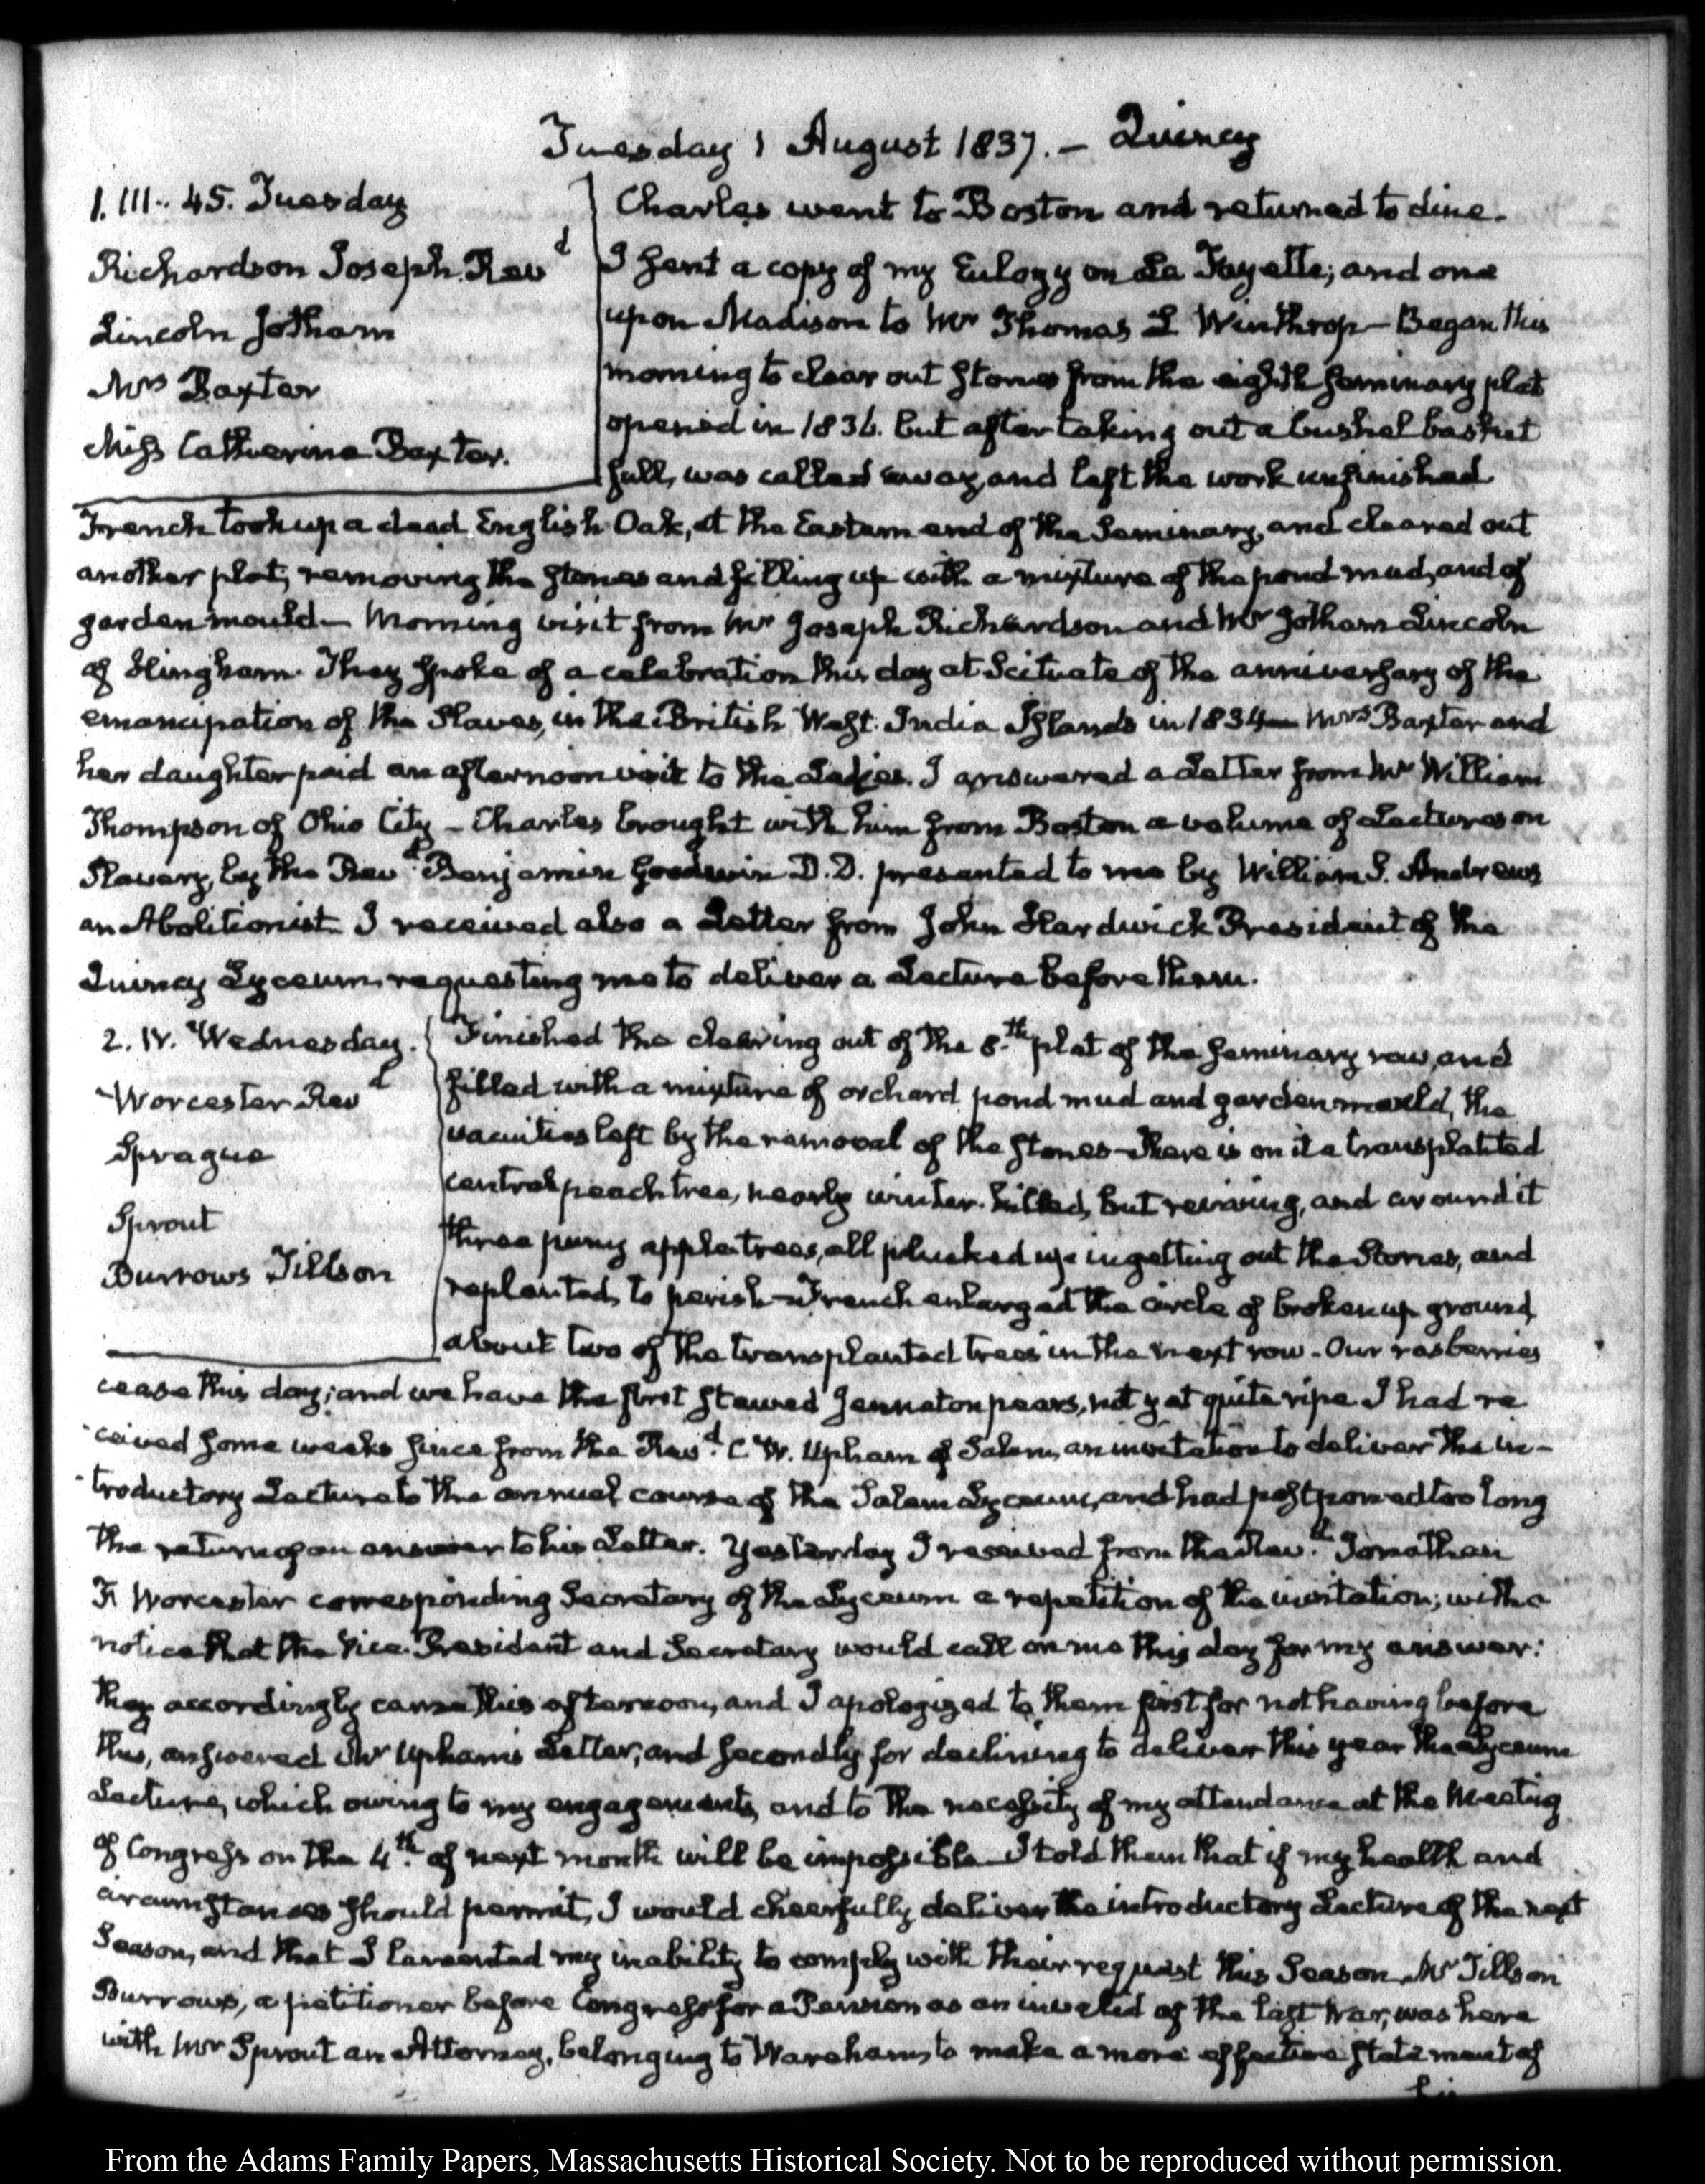 Tuesday 1 August 1837. – Quincy
1. III.. 45. Tuesday
Richardson Joseph. Revd
Lincoln Jotham
Mrs Baxter
Miss Catherine Baxter.
Charles went to Boston and returned to dine.
I sent a copy of my Eulogy on La Fayette; and one
upon Madison to Mr Thomas L Winthrop – Began this
morning to clear out stones from the eighth seminary plat
opened in 1836. but after taking out a bushel basket
full, was called away, and left the work unfinished
French took up a dead English Oak, at the Eastern end of the Seminary, and cleared out
another plat, removing the stones and filling up with a mixture of the pond mud, and of
garden mould – Morning visit from Mr Joseph Richardson and Mr Jotham Lincoln
of Hingham. They spoke of a celebration this day at Scituate of the anniversary of the
emancipation of the Slaves, in the British West India Islands in 1834 – Mrs Baxter and
her daughter paid an afternoon visit to the Ladies. I answered a Letter from Mr William
Thompson of Ohio City – Charles brought with him from Boston a volume of Lectures on
Slavery, by the Revd. Benjamin Goodwin D.D. presented to me by William S. Andrews
an Abolitionist I received also a Letter from John Hardwick President of the
Quincy Lyceum requesting me to deliver a Lecture before them.
2. IV. Wednesday.
Worcester Revd
Sprague
Sprout
Burrows Tillson
Finished the clearing out of the 8.th plat of the seminary row, and
filled with a mixture of orchard pond mud and garden mould, the
vacuities left by the removal of the stones – There is on it a transplanted
central peach tree, nearly winter-killed, but reviving, and around it
three puny apple trees, all plucked up in getting out the Stones, and
replanted, to perish – French enlarged the circle of broken up ground
about two of the transplanted trees in the next row – Our rasberries
cease this day; and we have the first stewed Jennaton pears, not yet quite ripe I had re
ceived some weeks since from the Revd. C. W. Upham of Salem, an invitation to deliver the in-
troductory Lecture to the annual course of the Salem Lyceum, and had postponed too long
the return of an answer to his Letter. Yesterday I received from the Revd. Jonathan
F. Worcester corresponding Secretary of the Lyceum a repetition of the invitation; with a
notice that the Vice-President and Secretary would call on me this day for my answer:
they accordingly came this afternoon, and I apologized to them first for not having before
this, answered Mr Upham's Letter; and secondly for declining to deliver this year the Lyceum
Lecture, which owing to my engagements, and to the necessity of my attendance at the Meeting
of Congress on the 4th. of next month will be impossible – I told them that if my health and
circumstances should permit, I would cheerfully deliver the introductory Lecture of the next
Season, and that I lamented my inability to comply with their request this Season. Mr Tillson
Burrows, a petitioner before Congress for a Pension as an invalid of the last War, was here
with Mr Sprout an Attorney, belonging to Wareham, to make a more effective statement of
his
From the Adams Family Papers, Massachusetts Historical Society. Not to be reproduced without permission.